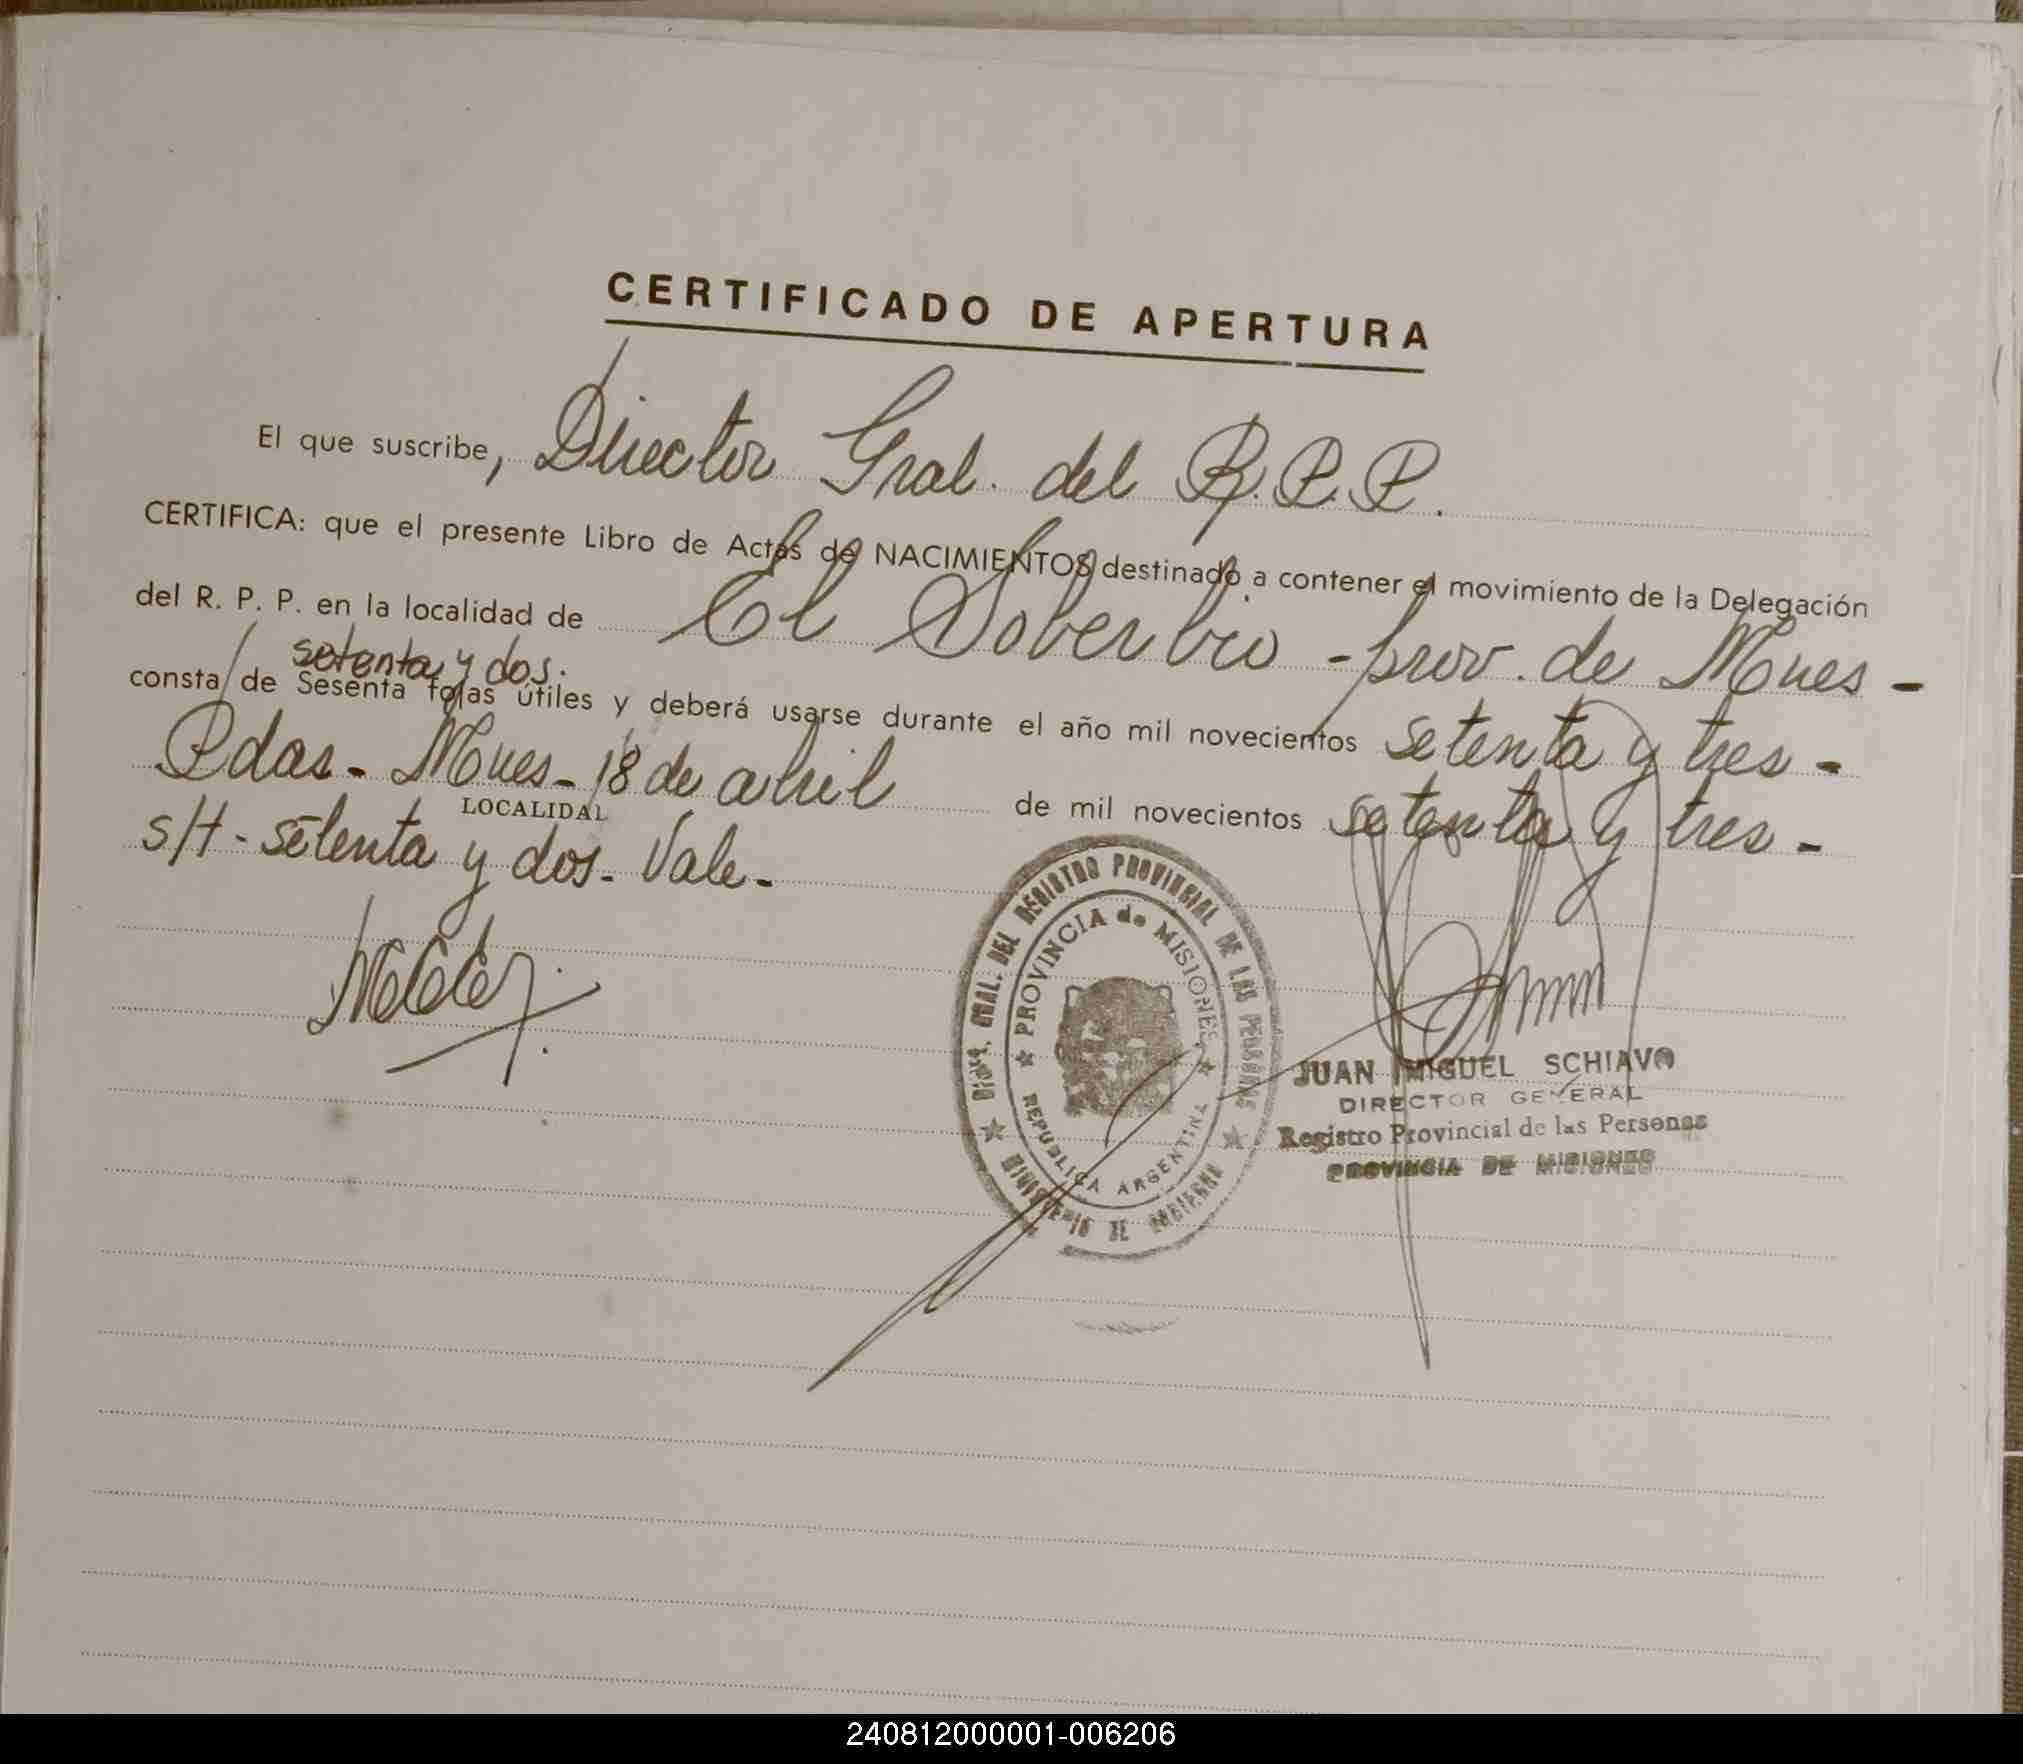 CERTIFICADO DE APERTURA
El que suscribe, Director Gral. del R.P.P.
CERTIFICA: que el presente Libro de Actas de NACIMIENTOS destinado a contener el movimiento de la Delegación
del R. P. P. en la localidad de El Soberbio - prov. de Mnes -
setenta y dos.
consta de Sesenta fojas útiles y deberá usarse durante el año mil novecientos setenta y tres -
Pdas - Mnes - 18 de abril de mil novecientos setenta y tres -
LOCALIDAD
s/t - setenta y dos - Vale -
DIREC. GRAL. DEL REGISTRO PROVINCIAL DE LAS PERSONAS
PROVINCIA de MISIONES
REPUBLICA ARGENTINA
MINISTERIO DE GOBIERNO
JUAN MIGUEL SCHIAVO
DIRECTOR GENERAL
Registro Provincial de las Personas
PROVINCIA DE MISIONES
240812000001-006206